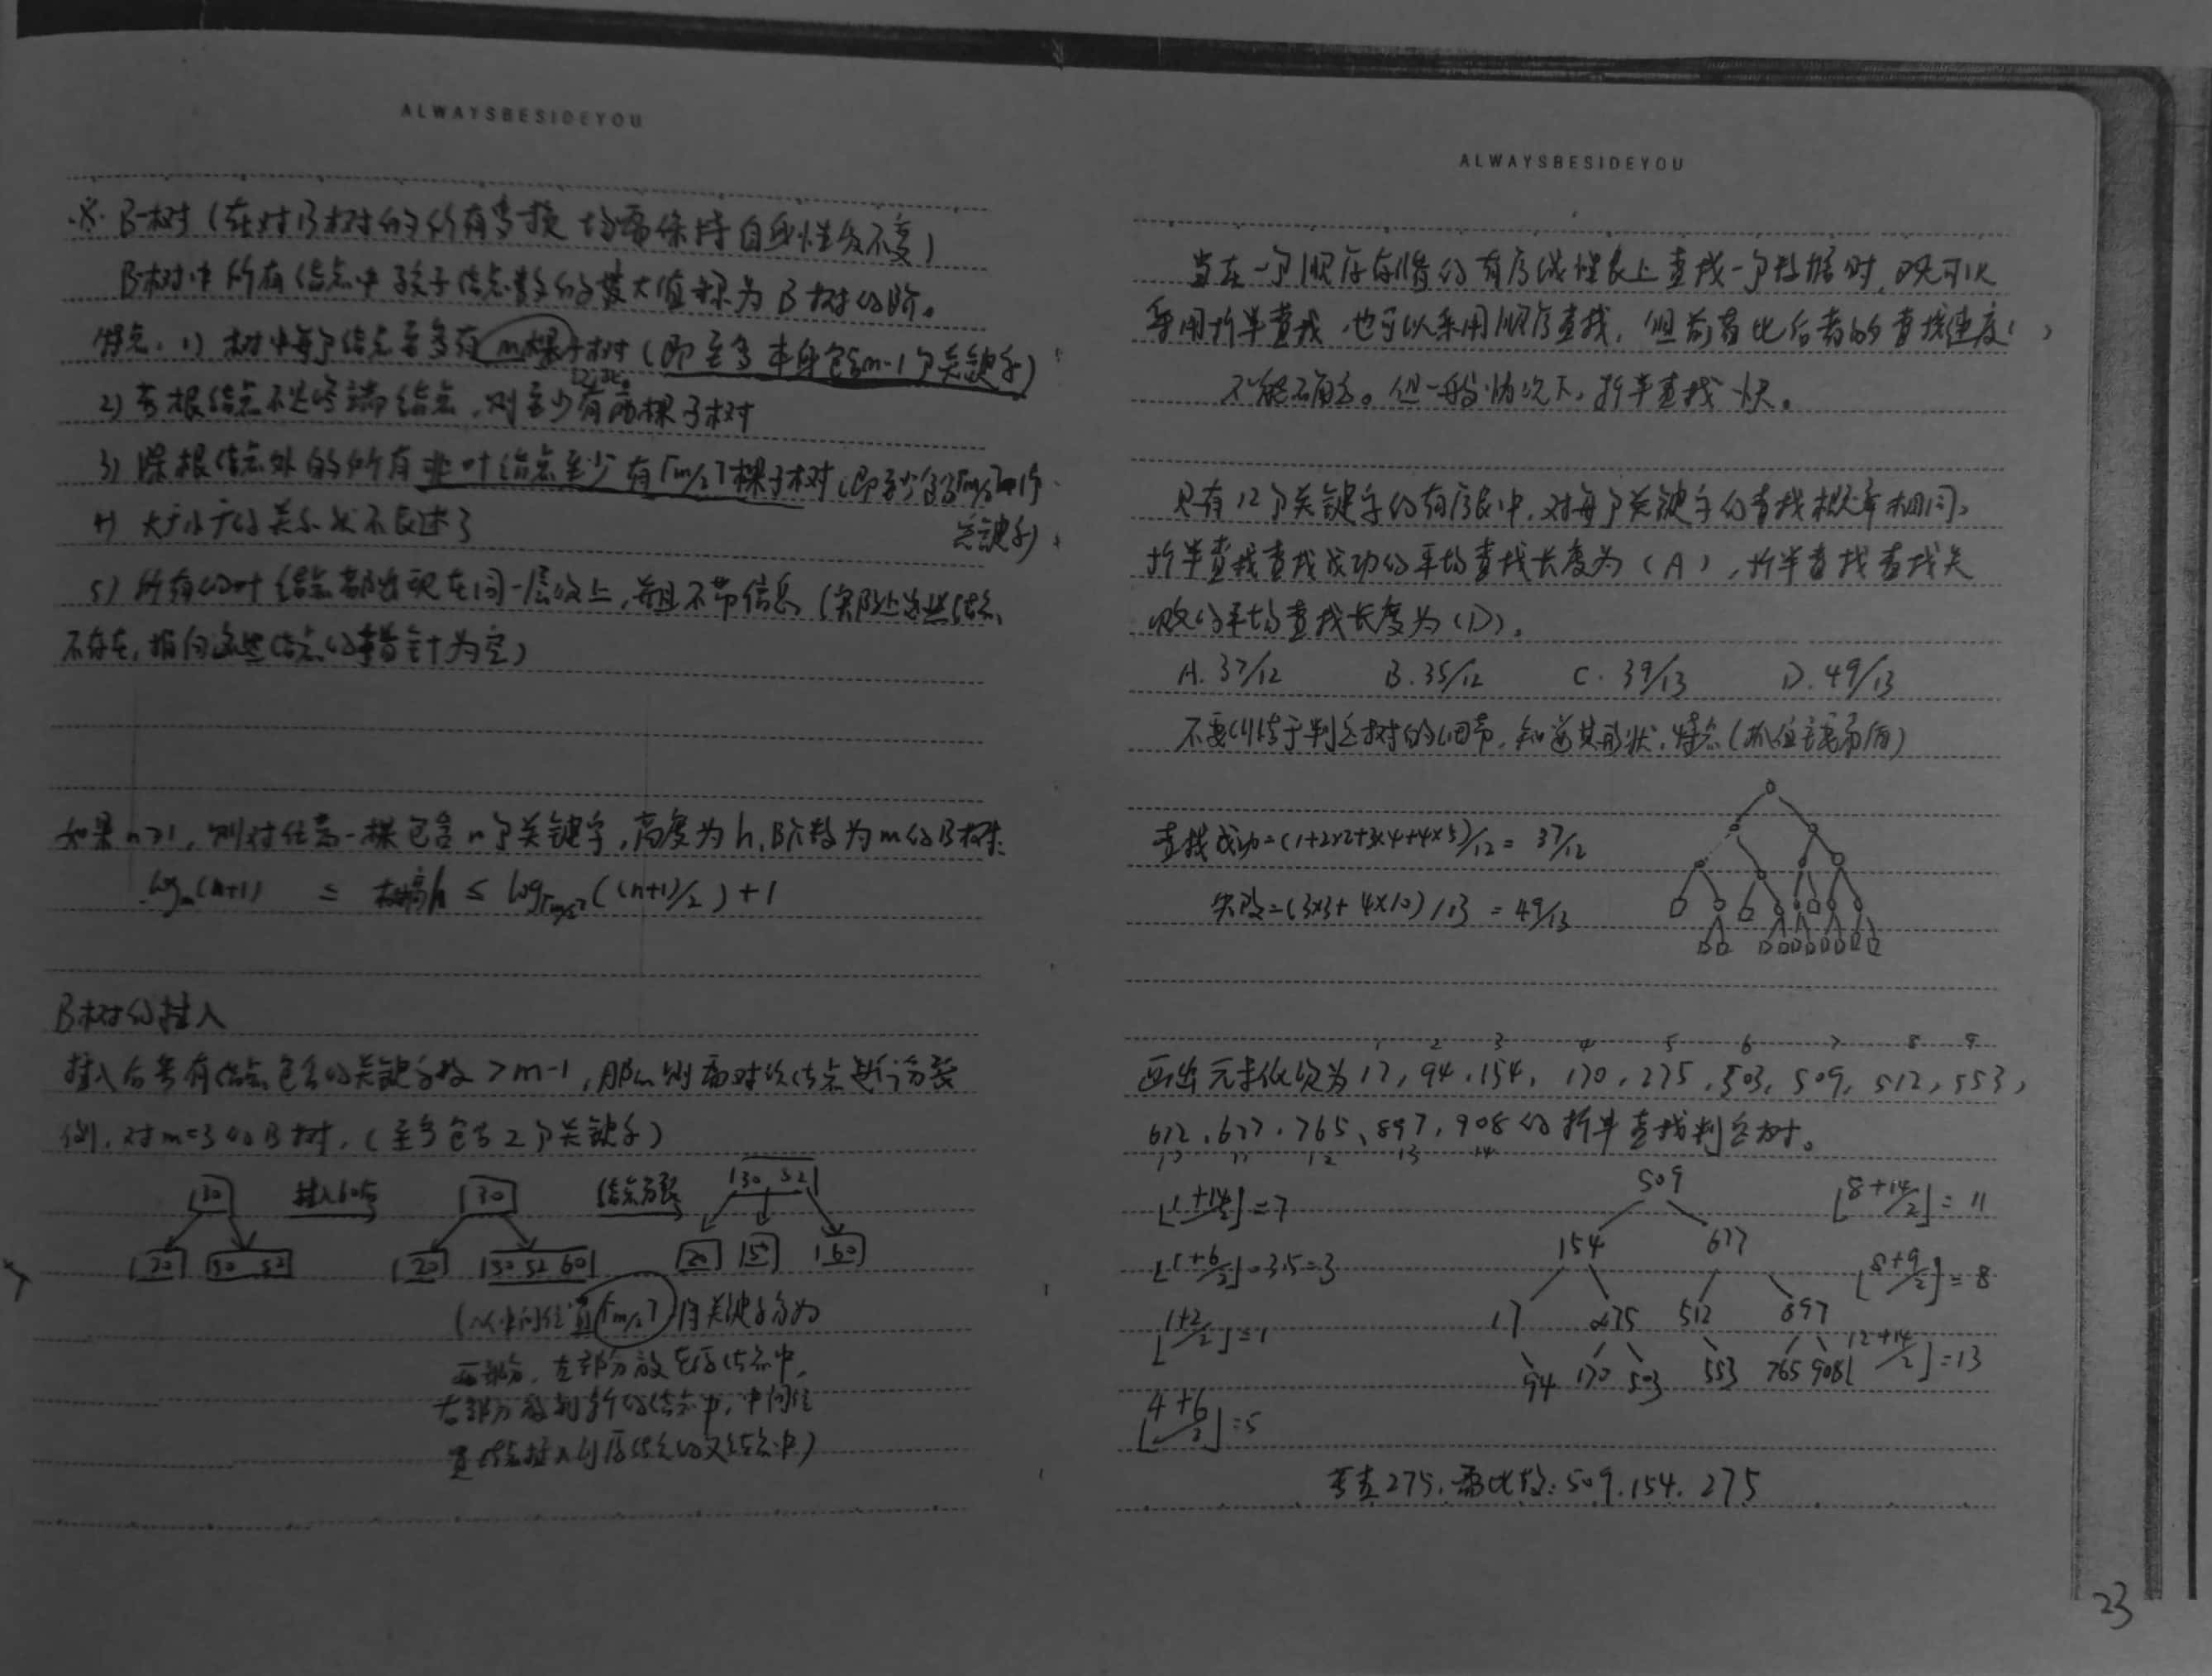 ALWAYSBESIDEYOU
※ B-树（在对B树的所有变换均需保持自身性质不变）
B-树中所有结点中孩子结点数的最大值称为B树的阶。
特点：1）树中每个结点至多有m棵子树（即至多本身包含m-1个关键字）
2）若根结点不是终端结点，则至少有两棵子树
3）除根结点外的所有非叶结点至少有⌈m/2⌉棵子树（即至少包含⌈m/2⌉-1个
关键字）
4）大于小于的关系就不表述了
5）所有的叶结点都出现在同一层次上，并且不带信息（实际上这些结点
不存在，指向这些结点的指针为空）
如果n≥1，则对任意一棵包含n个关键字，高度为h，阶数为m的B树：
log_m(n+1) ≤ 树高h ≤ log_⌈m/2⌉((n+1)/2)+1
B树的插入
插入后若有结点包含的关键字数>m-1，那么则需对该结点进行分裂
例，对m=3的B树，（至多包含2个关键字）
30 插入60后 30 结点分裂 30 52
20 50 52 20 50 52 60 20 50 60
（从中间位置⌈m/2⌉将关键字分为
两部分，左部分放在原结点中，
右部分放到新的结点中，中间位
置结点插入到原结点的父结点中）
ALWAYSBESIDEYOU
当在一个顺序存储的有序线性表上查找一个数据时，既可以
采用折半查找，也可以采用顺序查找，但前者比后者的查找速度（ ）
不能确定。但一般情况下，折半查找快。
具有12个关键字的有序表中，对每个关键字的查找概率相同，
折半查找查找成功的平均查找长度为（A），折半查找查找失
败的平均查找长度为（D）。
A. 37/12 B. 35/12 C. 39/13 D. 49/13
不要纠结于判定树的细节，知道其形状，特点（抓住主要矛盾）
查找成功=(1+2×2+3×4+4×5)/12=37/12
失败=(3×3+4×10)/13=49/13
1 2 3 4 5 6 7 8 9
画出元素依次为17，94，154，170，275，503，509，512，553，
612，677，765，897，908的折半查找判定树。
10 11 12 13 14
⌊1+14/2⌋=7 509 ⌊8+14/2⌋=11
154 677
⌊1+6/2⌋=3.5=3 ⌊8+9/2⌋=8
⌊1+2/2⌋=1 17 275 512 897
94 170 503 553 765 908 ⌊12+14/2⌋=13
⌊4+6/2⌋=5
若查275，需比较：509，154，275
23